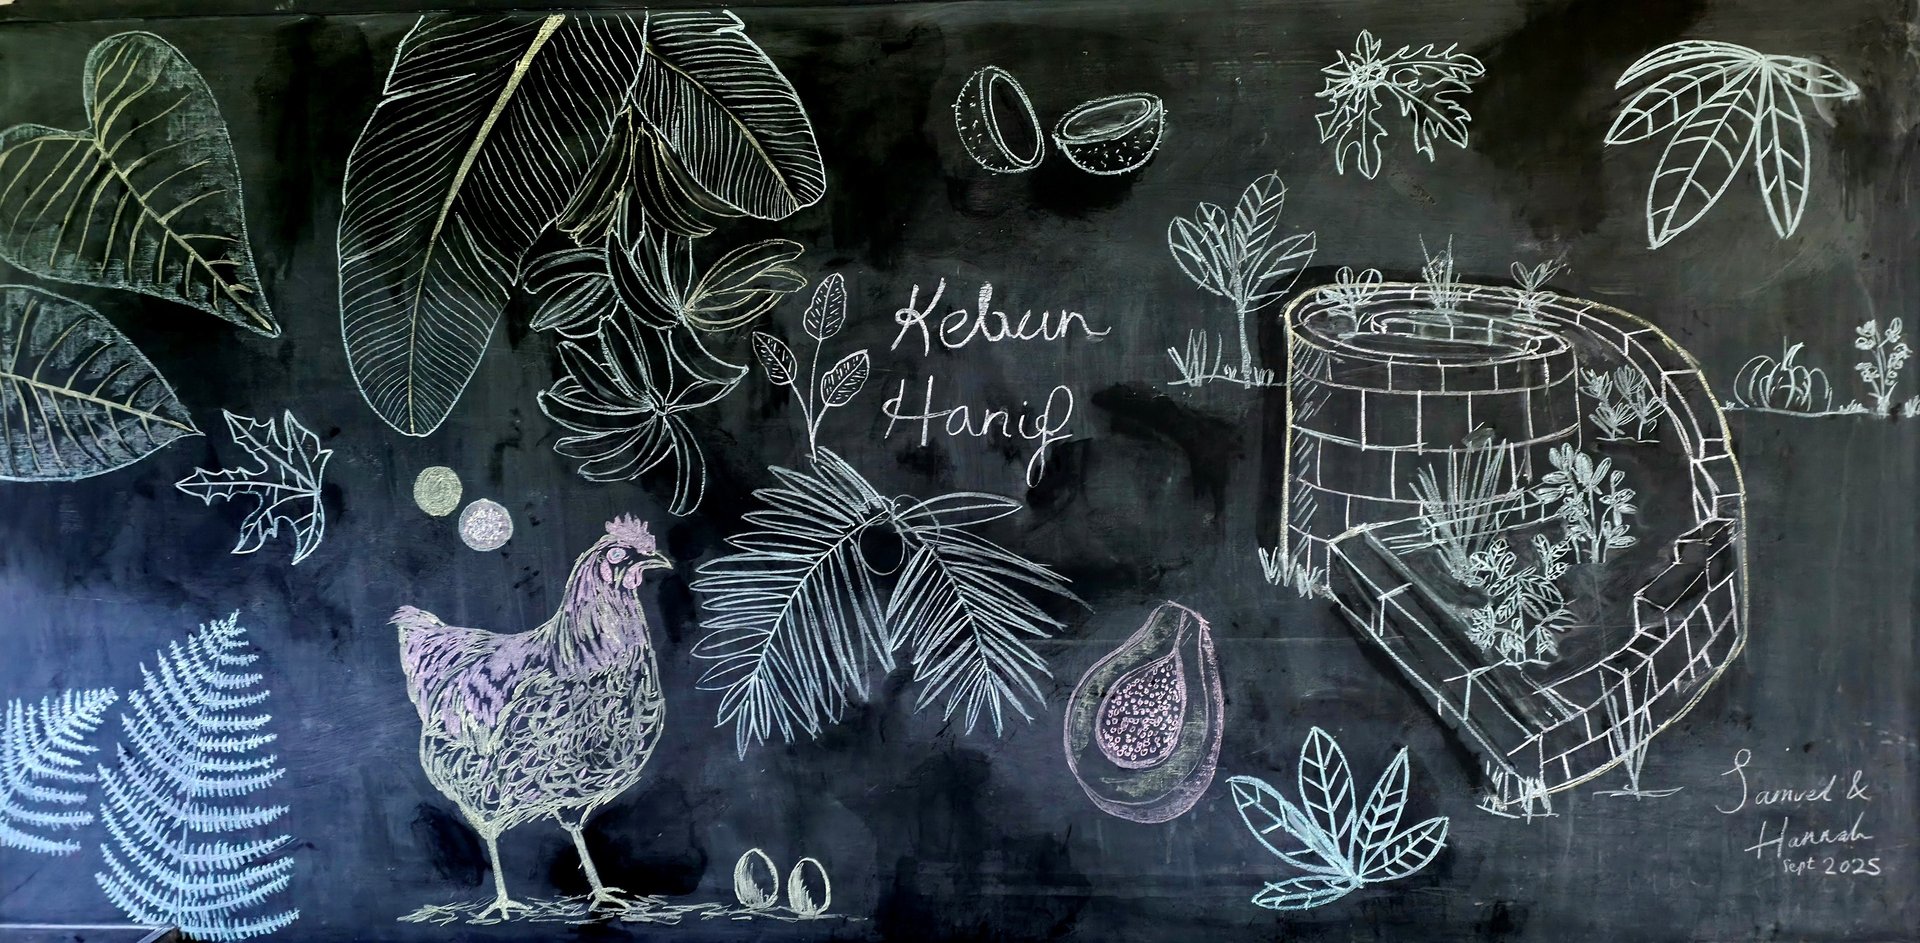 Kebun
Hanif
Samuel &
Hannah
Sept 2025